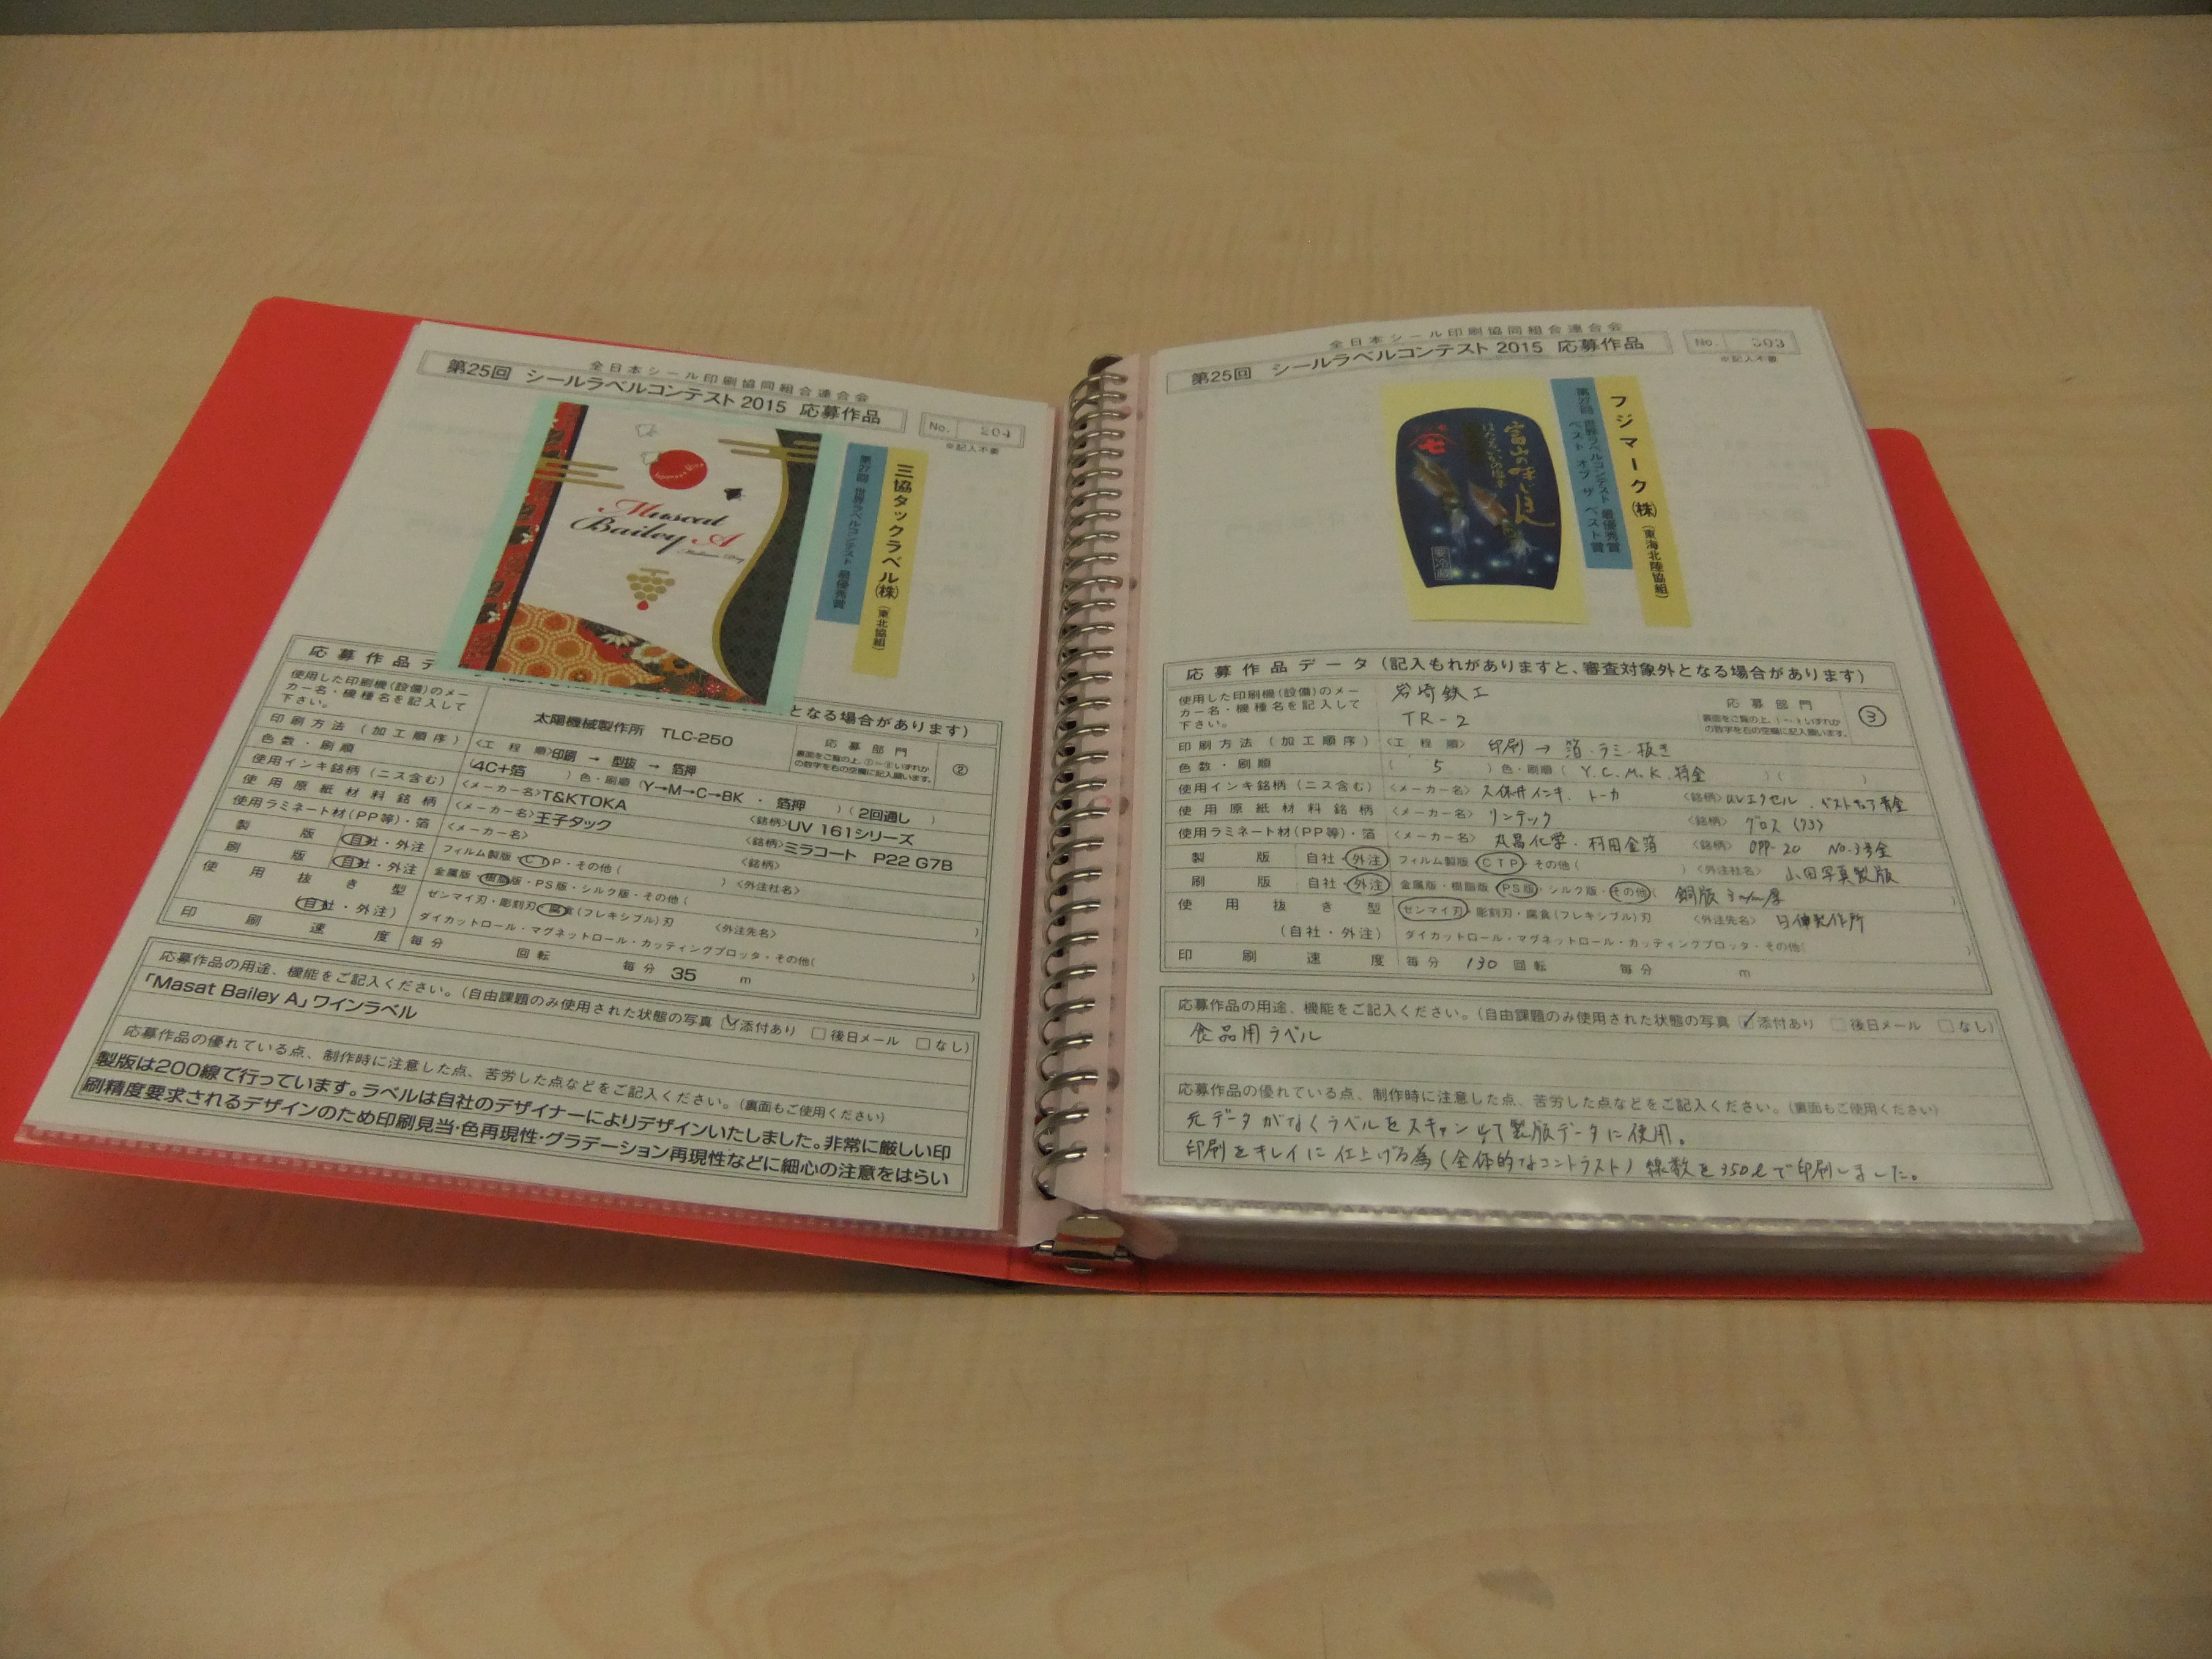 全日本シール印刷協同組合連合会
第25回 シールラベルコンテスト2015 応募作品
No. 204
※記入不要
Muscat
Bailey A
第27回 世界ラベルコンテスト 最優秀賞
三協タックラベル(株)(東北協組)
応募作品デ
となる場合があります)
使用した印刷機(設備)のメー
カー名・機種名を記入して
下さい。
太陽機械製作所 TLC-250
応募部門
裏面をご覧の上、①~⑧いずれか
の数字を右の空欄に記入願います。
②
印刷方法(加工順序) <工程順>印刷 → 型抜 → 箔押
色数・刷順 (4C+箔 )色・刷順(Y→M→C→BK ・ 箔押 )(2回通し )
使用インキ銘柄(ニス含む) <メーカー名>T&KTOKA <銘柄>UV 161シリーズ
使用原紙材料銘柄 <メーカー名>王子タック <銘柄>ミラコート P22 G7B
使用ラミネート材(PP等)・箔 <メーカー名> <銘柄>
製版 自社・外注 フィルム製版・CTP・その他( ) <外注社名>
刷版 自社・外注 金属版・樹脂版・PS版・シルク版・その他( )
使用抜き型 ゼンマイ刃・彫刻刃・腐食(フレキシブル)刃 <外注先名>
(自社・外注) ダイカットロール・マグネットロール・カッティングプロッタ・その他( )
印刷速度 毎分 回転 毎分 35 m
応募作品の用途、機能をご記入ください。(自由課題のみ使用された状態の写真 ☑添付あり □後日メール □なし)
「Masat Bailey A」ワインラベル
応募作品の優れている点、制作時に注意した点、苦労した点などをご記入ください。(裏面もご使用ください)
製版は200線で行っています。ラベルは自社のデザイナーによりデザインいたしました。非常に厳しい印
刷精度要求されるデザインのため印刷見当・色再現性・グラデーション再現性などに細心の注意をはらい
全日本シール印刷協同組合連合会
第25回 シールラベルコンテスト2015 応募作品
No. 303
※記入不要
富山の味じまん
第27回 世界ラベルコンテスト 最優秀賞
ベスト オブ ザ ベスト賞
フジマーク(株)(東海北陸協組)
応募作品データ(記入もれがありますと、審査対象外となる場合があります)
使用した印刷機(設備)のメー
カー名・機種名を記入して
下さい。
岩崎鉄工
TR-2
応募部門
裏面をご覧の上、①~⑧いずれか
の数字を右の空欄に記入願います。
③
印刷方法(加工順序) <工程順> 印刷 → 箔・ラミ・抜き
色数・刷順 ( 5 )色・刷順(Y.C.M.K.特金 )( )
使用インキ銘柄(ニス含む) <メーカー名> 久保井インキ、トーカ <銘柄>UVエクセル、ベストキュア青金
使用原紙材料銘柄 <メーカー名> リンテック <銘柄> グロス(73)
使用ラミネート材(PP等)・箔 <メーカー名> 丸昌化学、村田金箔 <銘柄> OPP-20 No.3青金
製版 自社・外注 フィルム製版・CTP・その他( ) <外注社名> 山田写真製版
刷版 自社・外注 金属版・樹脂版・PS版・シルク版・その他( 銅版 3m/m厚 )
使用抜き型 ゼンマイ刃・彫刻刃・腐食(フレキシブル)刃 <外注先名> 日伸製作所
(自社・外注) ダイカットロール・マグネットロール・カッティングプロッタ・その他( )
印刷速度 毎分 130 回転 毎分 m
応募作品の用途、機能をご記入ください。(自由課題のみ使用された状態の写真 ☑添付あり □後日メール □なし)
食品用ラベル
応募作品の優れている点、制作時に注意した点、苦労した点などをご記入ください。(裏面もご使用ください)
元データがなくラベルをスキャンして製版データに使用。
印刷をキレイに仕上げる為(全体的なコントラスト)線数を350ℓで印刷しました。